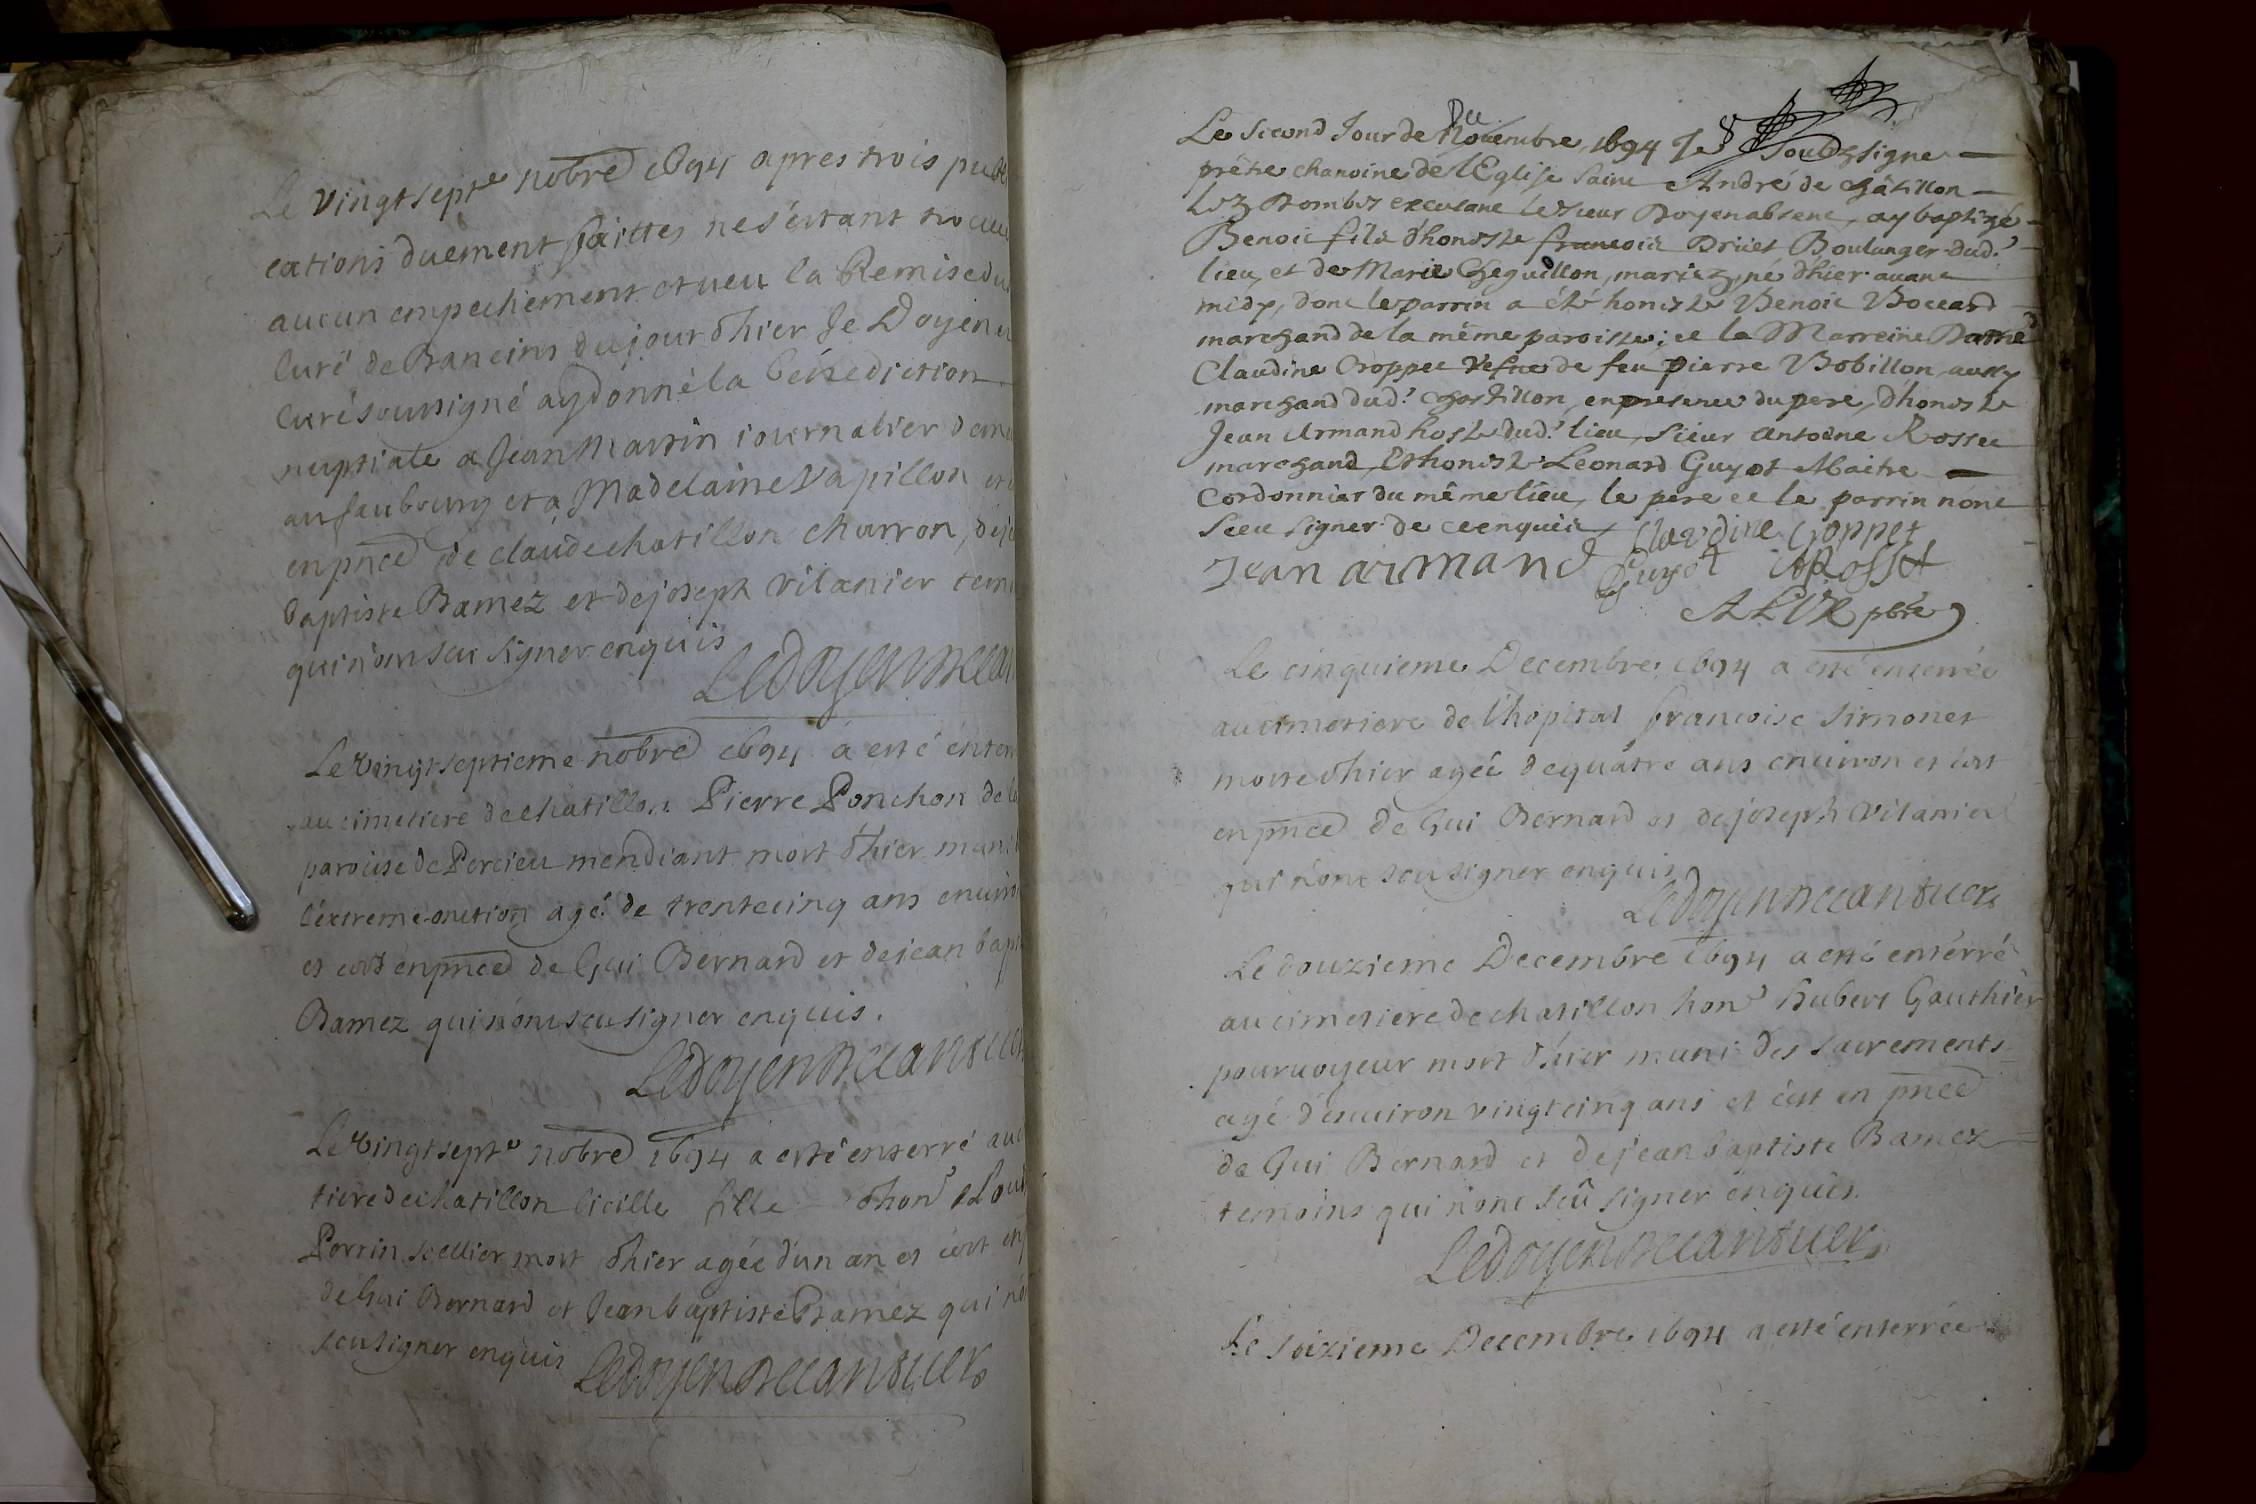 Le vingt sept.e nobre 1694 apres trois publi
cations duement faittes ne s'estant trouué
aucun empechement et ueu la Remise du
Curé de Rancins du jour d'hier Je Doyen et
Curé soussigné ay donné la bénediction
nuptiale a Jean Martin iournalier dem
au faubourg et a Madelaine Vapillon
en pnce de claude chatillon charron, de je
baptiste Bamez et de joseph vilanier tem
qui n'ont seu signer enquis
Le doyen
Le vingt septieme nobre 1694 a esté enter
au cimetiere de chatillon Pierre Ponchon de la
paroisse de Percieu mendiant mort d'hier muni
l'extreme-onction agé de trente cinq ans enuiron
et c'est en pnce de Gui Bernard et de jean bapt
Bamez qui n'ont seu signer enquis.
Le doyen
Le vingt sept.e nobre 1694 a esté enterré au ci
tiere de chatillon fille d'hon.e
Perrin scellier mort d'hier agée d'un an et c'est en p
de Gui Bernard et Jean baptiste Bamez qui n'o
seu signer enquis
Le doyen
De
Le second Jour de Nouembre, 1694 Je soubsigne
prêtre chanoine de l'Eglise saint André de Châtillon
lez Dombes excusant le sieur Doyen absent, ay baptizé
Benoit fils d'honeste francois Druet Boulanger dud.t
lieu, et de Marie Cheguillon, mariez, né d'hier auant
midy, dont le parrin a été honeste Benoit Boccard
marchand de la même paroisse; et la Marreine Dame
Claudine Croppet Vefue de feu pierre Bobillon, aussy
marchand dud.t Chastillon, en presence du pere, d'honeste
Jean Armand hoste dud.t lieu, sieur Antoine Rosset
marchand, Et honeste Leonard Guyot Maitre
Cordonnier du même lieu, le pere et le parrin n'ont
sceu signer de ce enquis
Claudine Croppet
Jean armand Guyot A Rosset
pbre
Le cinquieme Decembre 1694 a esté enterrée
au cimetiere de l'hopital francoise simonet
morte d'hier agée de quatre ans enuiron et c'est
en pnce de Gui Bernard et de joseph vilanier
qui n'ont seu signer enquis
Le doyen
Le douzieme Decembre 1694 a esté enterré
au cimetiere de chatillon hon.e Hubert Gauthier
pouruoyeur mort d'hier muni des sacrements
agé d'enuiron vingt cinq ans et c'est en pnce
de Gui Bernard et de jean baptiste Bamez
temoins qui n'ont seû signer enquis
Le doyen
Le seizieme Decembre 1694 a esté enterrée